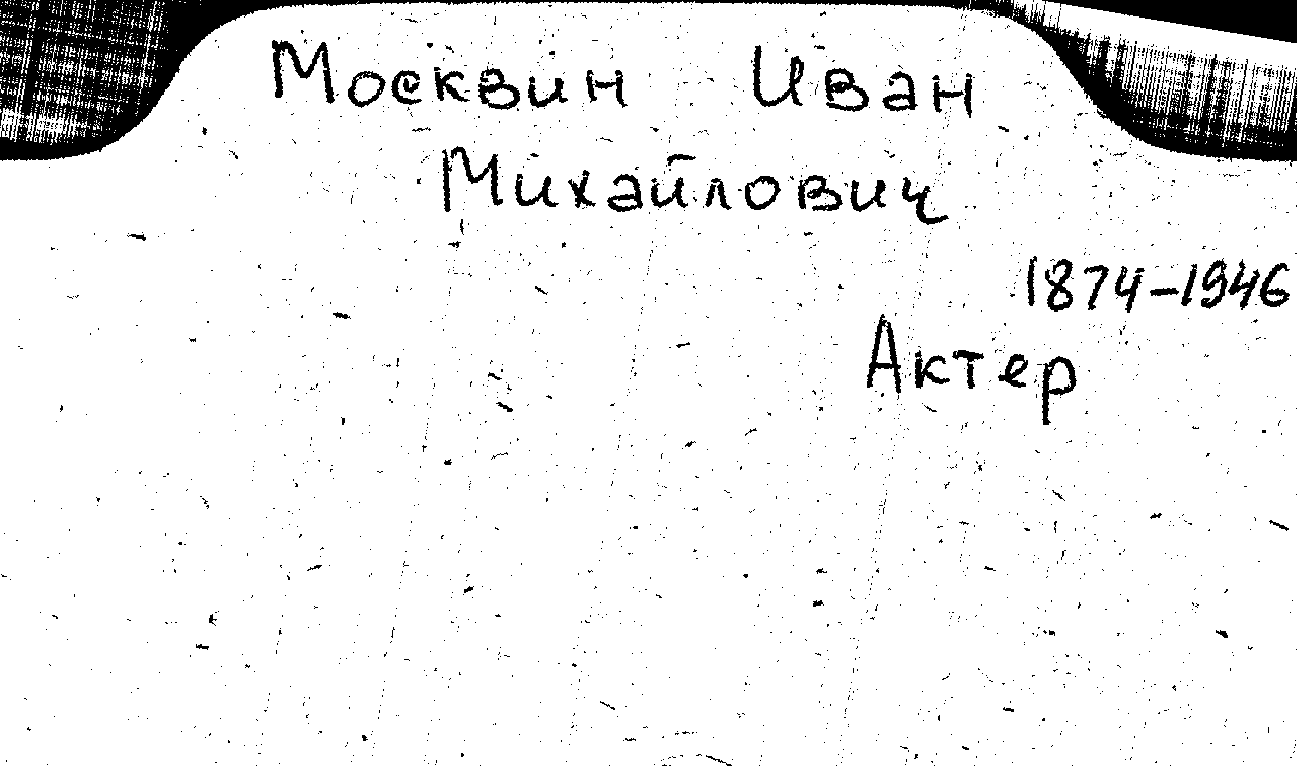 Москвин Иван
Михайлович
1874-1946
Актер